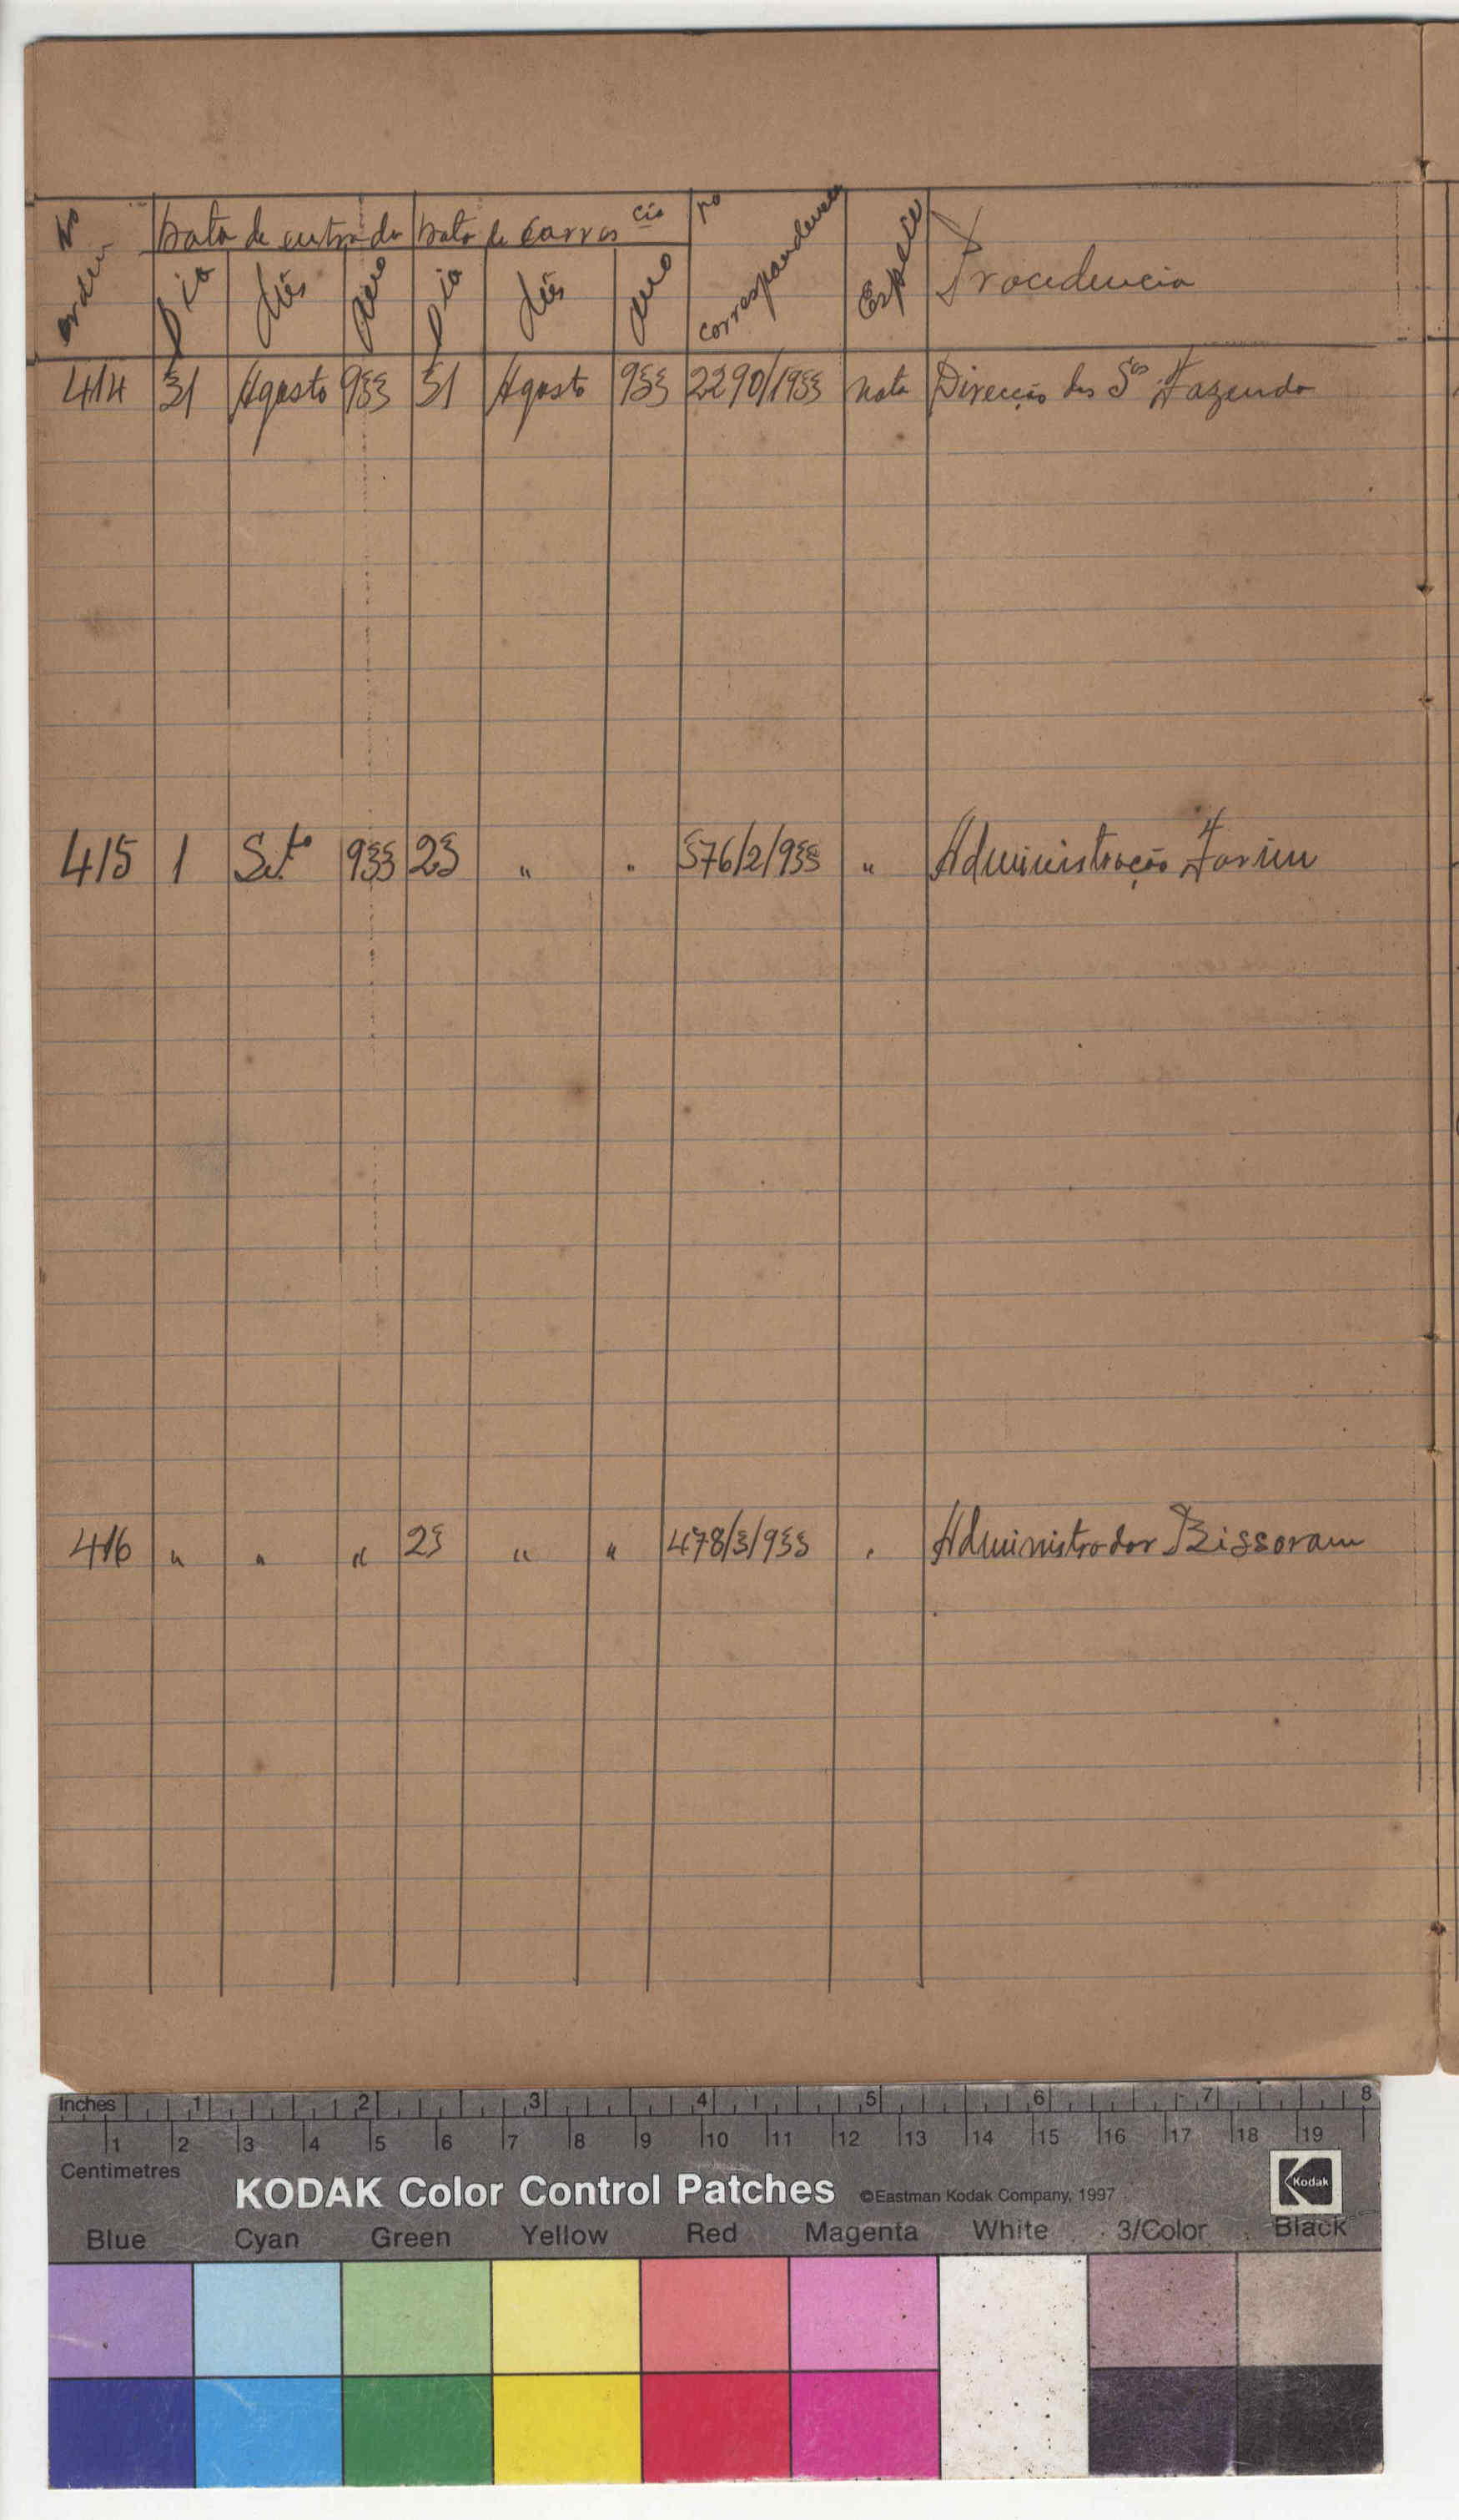 No ordem
Data de entrada Data de corres cia
No correspondencia
Especie
Procedencia
Dia Mês Ano Dia Mês Ano
414 31 Agosto 933 31 Agosto 933 2290/1933 Nota Direcção dos Sos Fazenda
415 1 Set.to 933 23 " " 576/2/933 " Administração Farim
416 " " " 23 " " 478/3/933 " Administrador Bissoram
Inches 1 2 3 4 5 6 7 8
1 2 3 4 5 6 7 8 9 10 11 12 13 14 15 16 17 18 19
Centimetres
KODAK Color Control Patches ©Eastman Kodak Company, 1997 Kodak
Blue Cyan Green Yellow Red Magenta White 3/Color Black